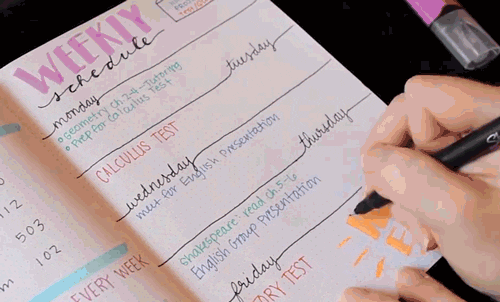 WEEKLY
schedule
monday
geometry ch.2-4-Tutoring
Prep for Calculus Test
tuesday
CALCULUS TEST
wednesday
meet for English Presentation
thursday
shakespeare: read ch.5-6
English Group Presentation
friday
TORY TEST
112
503
102
EVERY WEEK